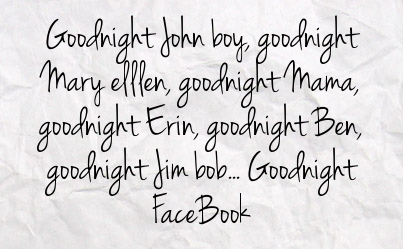 Goodnight John boy, goodnight
Mary elllen, goodnight Mama,
goodnight Erin, goodnight Ben,
goodnight Jim bob... Goodnight
FaceBook